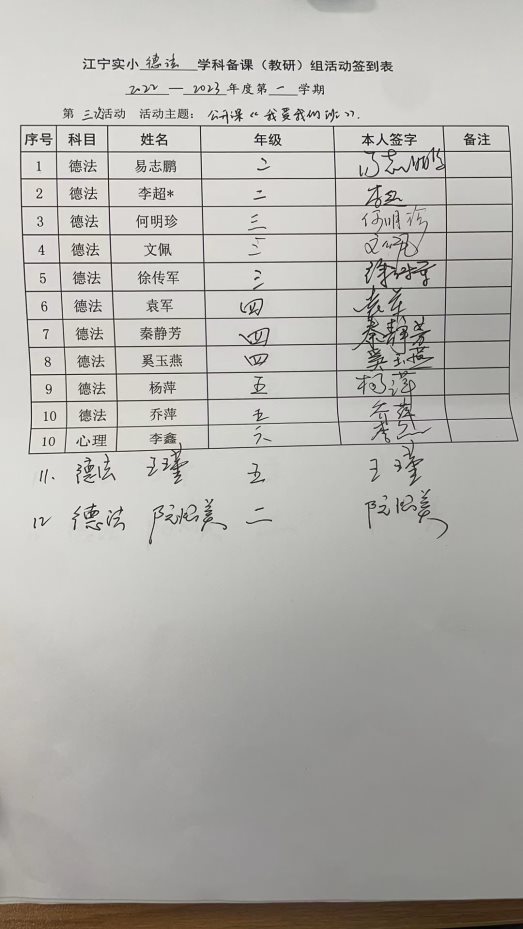 江宁实小 德法 学科备课（教研）组活动签到表
2022 — 2023 年度第 一 学期
第 三次活动 活动主题： 公开课《我爱我们班》.
序号 科目 姓名 年级 本人签字 备注
1 德法 易志鹏 二 易志鹏
2 德法 李超* 二 李超
3 德法 何明珍 三 何明珍
4 德法 文佩 三 文佩
5 德法 徐传军 三 徐传军
6 德法 袁军 四 袁军
7 德法 秦静芳 四 秦静芳
8 德法 奚玉燕 四 奚玉燕
9 德法 杨萍 五 杨萍
10 德法 乔萍 五 乔萍
10 心理 李鑫 六 李鑫
11. 德法 王瑾 五 王瑾
12 德法 阮 美 二 阮 美